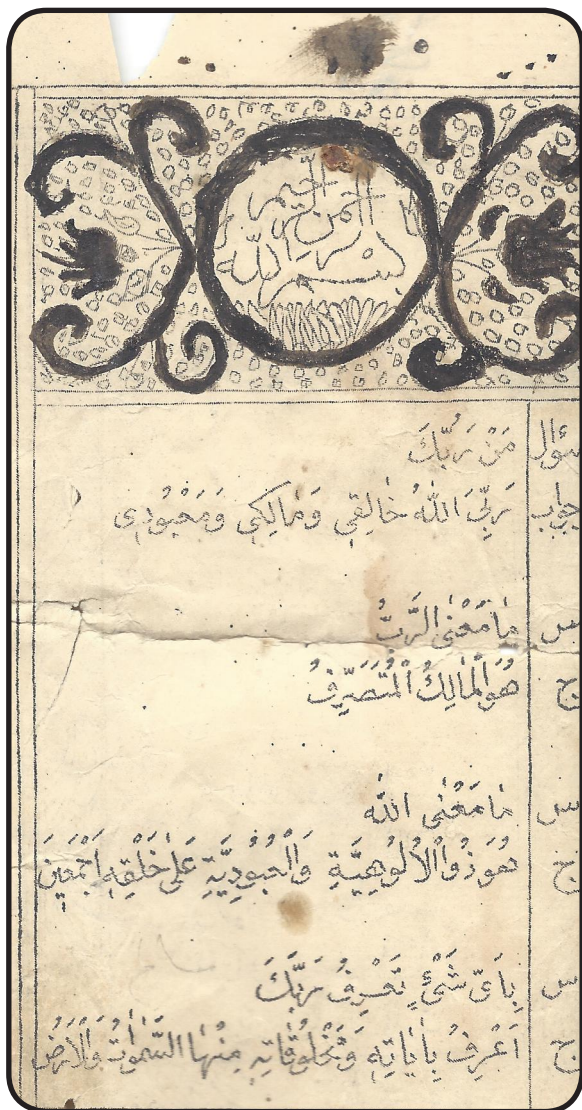 بِسْمِ اللّٰه الرحمن الرحيم
سؤال مَنْ رَبُّكَ
جواب رَبِّىَ اللّٰهُ خٰالِقِي وَمٰالِكِي وَمَعْبُودِى
س مٰا مَعْنَى الرَّبُّ
ج هُوَ الْمٰالِكُ الْمُتَصَرِّفُ
س مٰا مَعْنَى اللّٰه
ج هُوَ ذُو الْاُلُوهِيَّةِ وَالْعُبُودِيَّةِ عَلٰى خَلْقِهِ اَجْمَعِينَ
س بِاَىِّ شَىْءٍ تَعْرِفُ رَبَّكَ
ج اَعْرِفُ بِاٰيٰاتِهِ وَمَخْلُوقٰاتِهِ مِنْهٰا السَّمٰوٰاتُ وَالْاَرْضُ